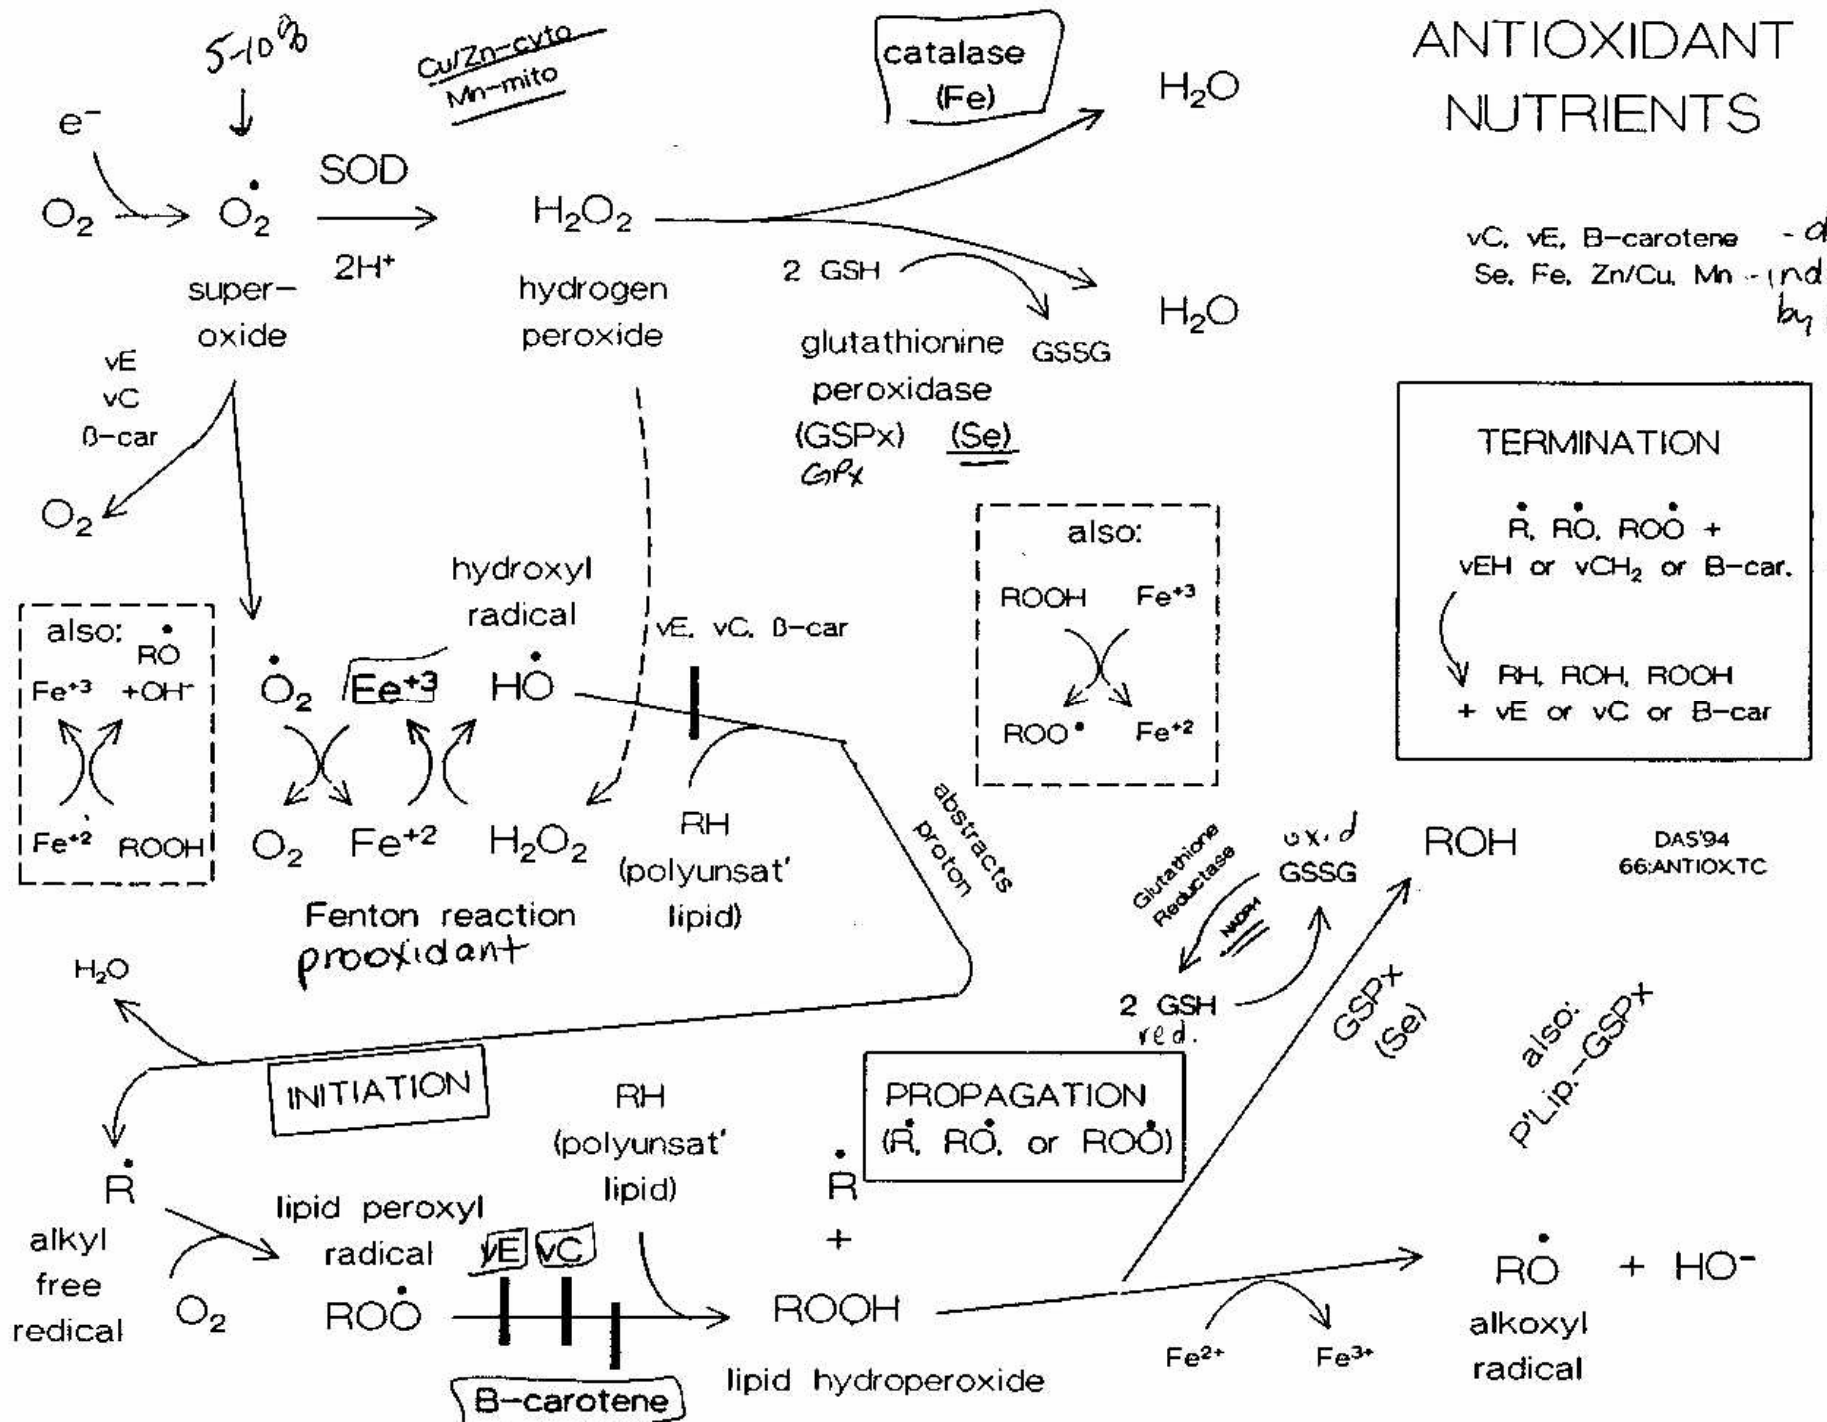 ANTIOXIDANT
NUTRIENTS
5-10%
Cu/Zn-cyto
Mn-mito
catalase
(Fe)
H₂O
e⁻
O₂
Ȯ₂
SOD
2H⁺
H₂O₂
super-
oxide
hydrogen
peroxide
2 GSH
GSSG
H₂O
glutathionine
peroxidase
(GSPx) (Se)
GPx
vC, vE, B-carotene -
Se, Fe, Zn/Cu, Mn - ind
by
vE
vC
β-car
O₂
TERMINATION
Ṙ, RȮ, ROȮ +
vEH or vCH₂ or B-car.
RH, ROH, ROOH
+ vE or vC or B-car
also:
ROOH Fe⁺³
ROO• Fe⁺²
hydroxyl
radical
vE, vC, β-car
also:
RȮ
Fe⁺³ +OH⁻
Fe⁺² ROOH
Ȯ₂ Fe⁺³ HȮ
O₂ Fe⁺² H₂O₂
Fenton reaction
prooxidant
RH
(polyunsat'
lipid)
abstracts
proton
Glutathione
Reductase
NADPH
oxid
GSSG
2 GSH
red.
ROH
DAS'94
66:ANTIOX.TC
GSPx
(Se)
also:
P'Lip.-GSPx
H₂O
INITIATION
RH
(polyunsat'
lipid)
PROPAGATION
(Ṙ, RȮ, or ROȮ)
Ṙ
alkyl
free
redical
O₂
lipid peroxyl
radical
ROȮ
vE vC
B-carotene
Ṙ
+
ROOH
lipid hydroperoxide
Fe²⁺ Fe³⁺
RȮ + HO⁻
alkoxyl
radical